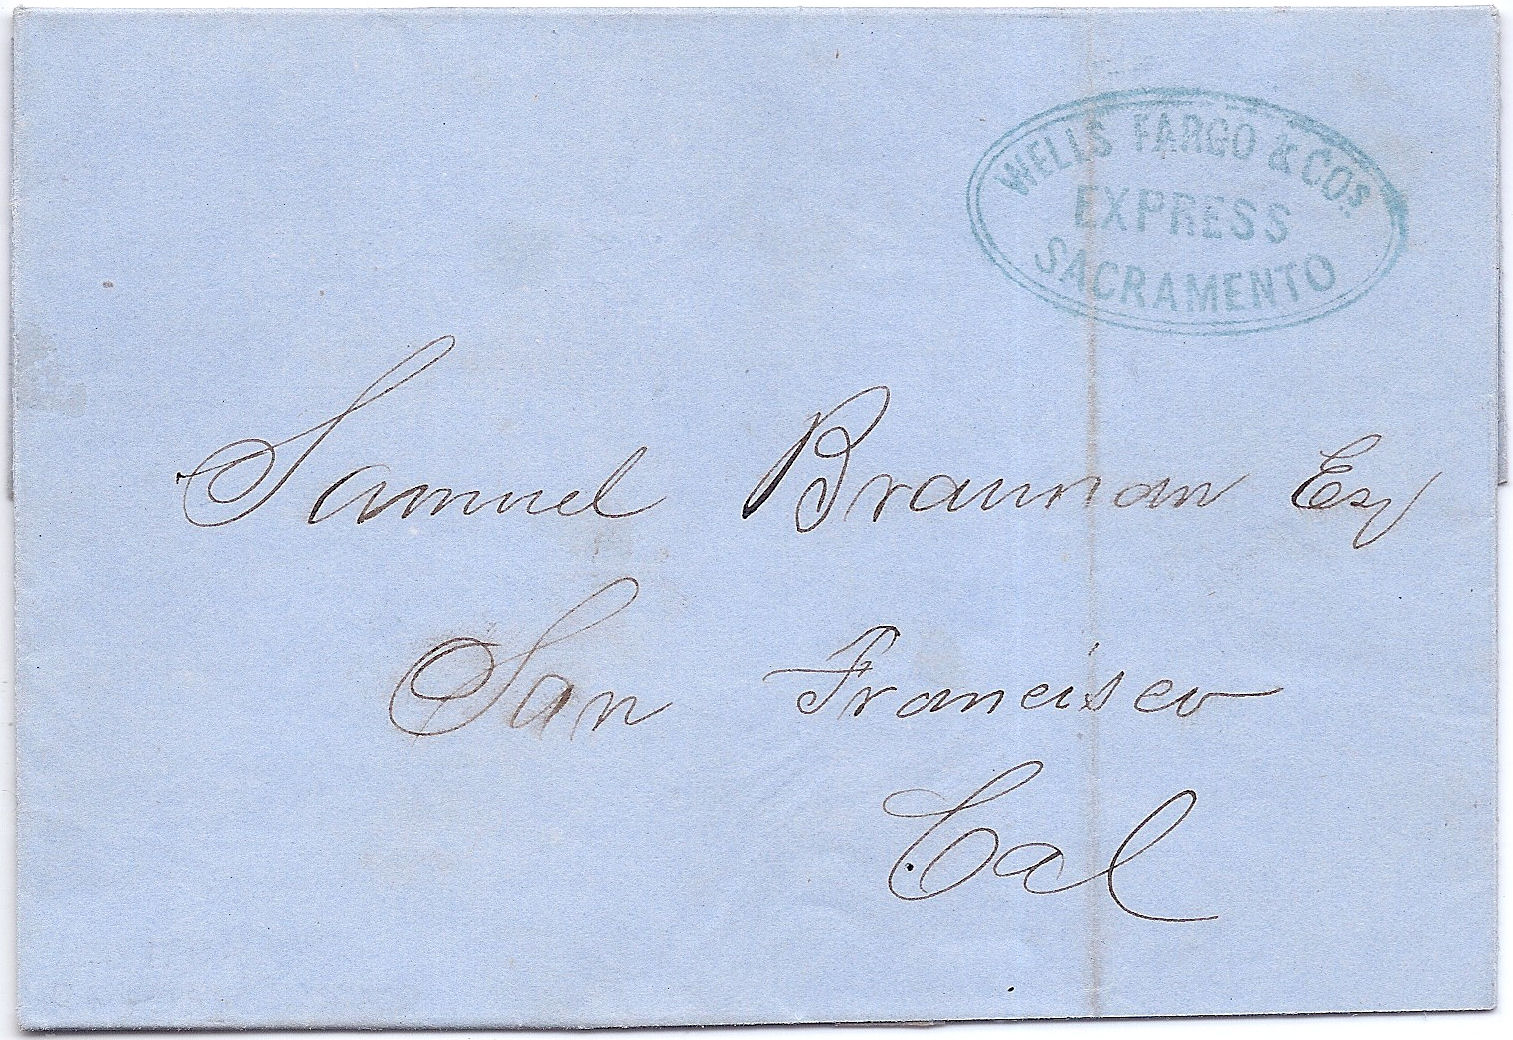 WELLS FARGO & COS.
EXPRESS
SACRAMENTO
Samuel Brannan Esq
San Francisco
Cal